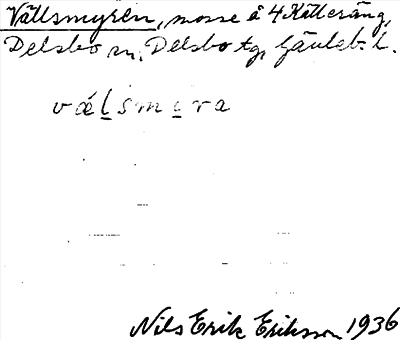 Vällsmyren, mosse å 4 Källeräng,
Delsbo sn, Delsbo tg, Gävleb. l.
vålsmira
Nils Erik Eriksson 1936